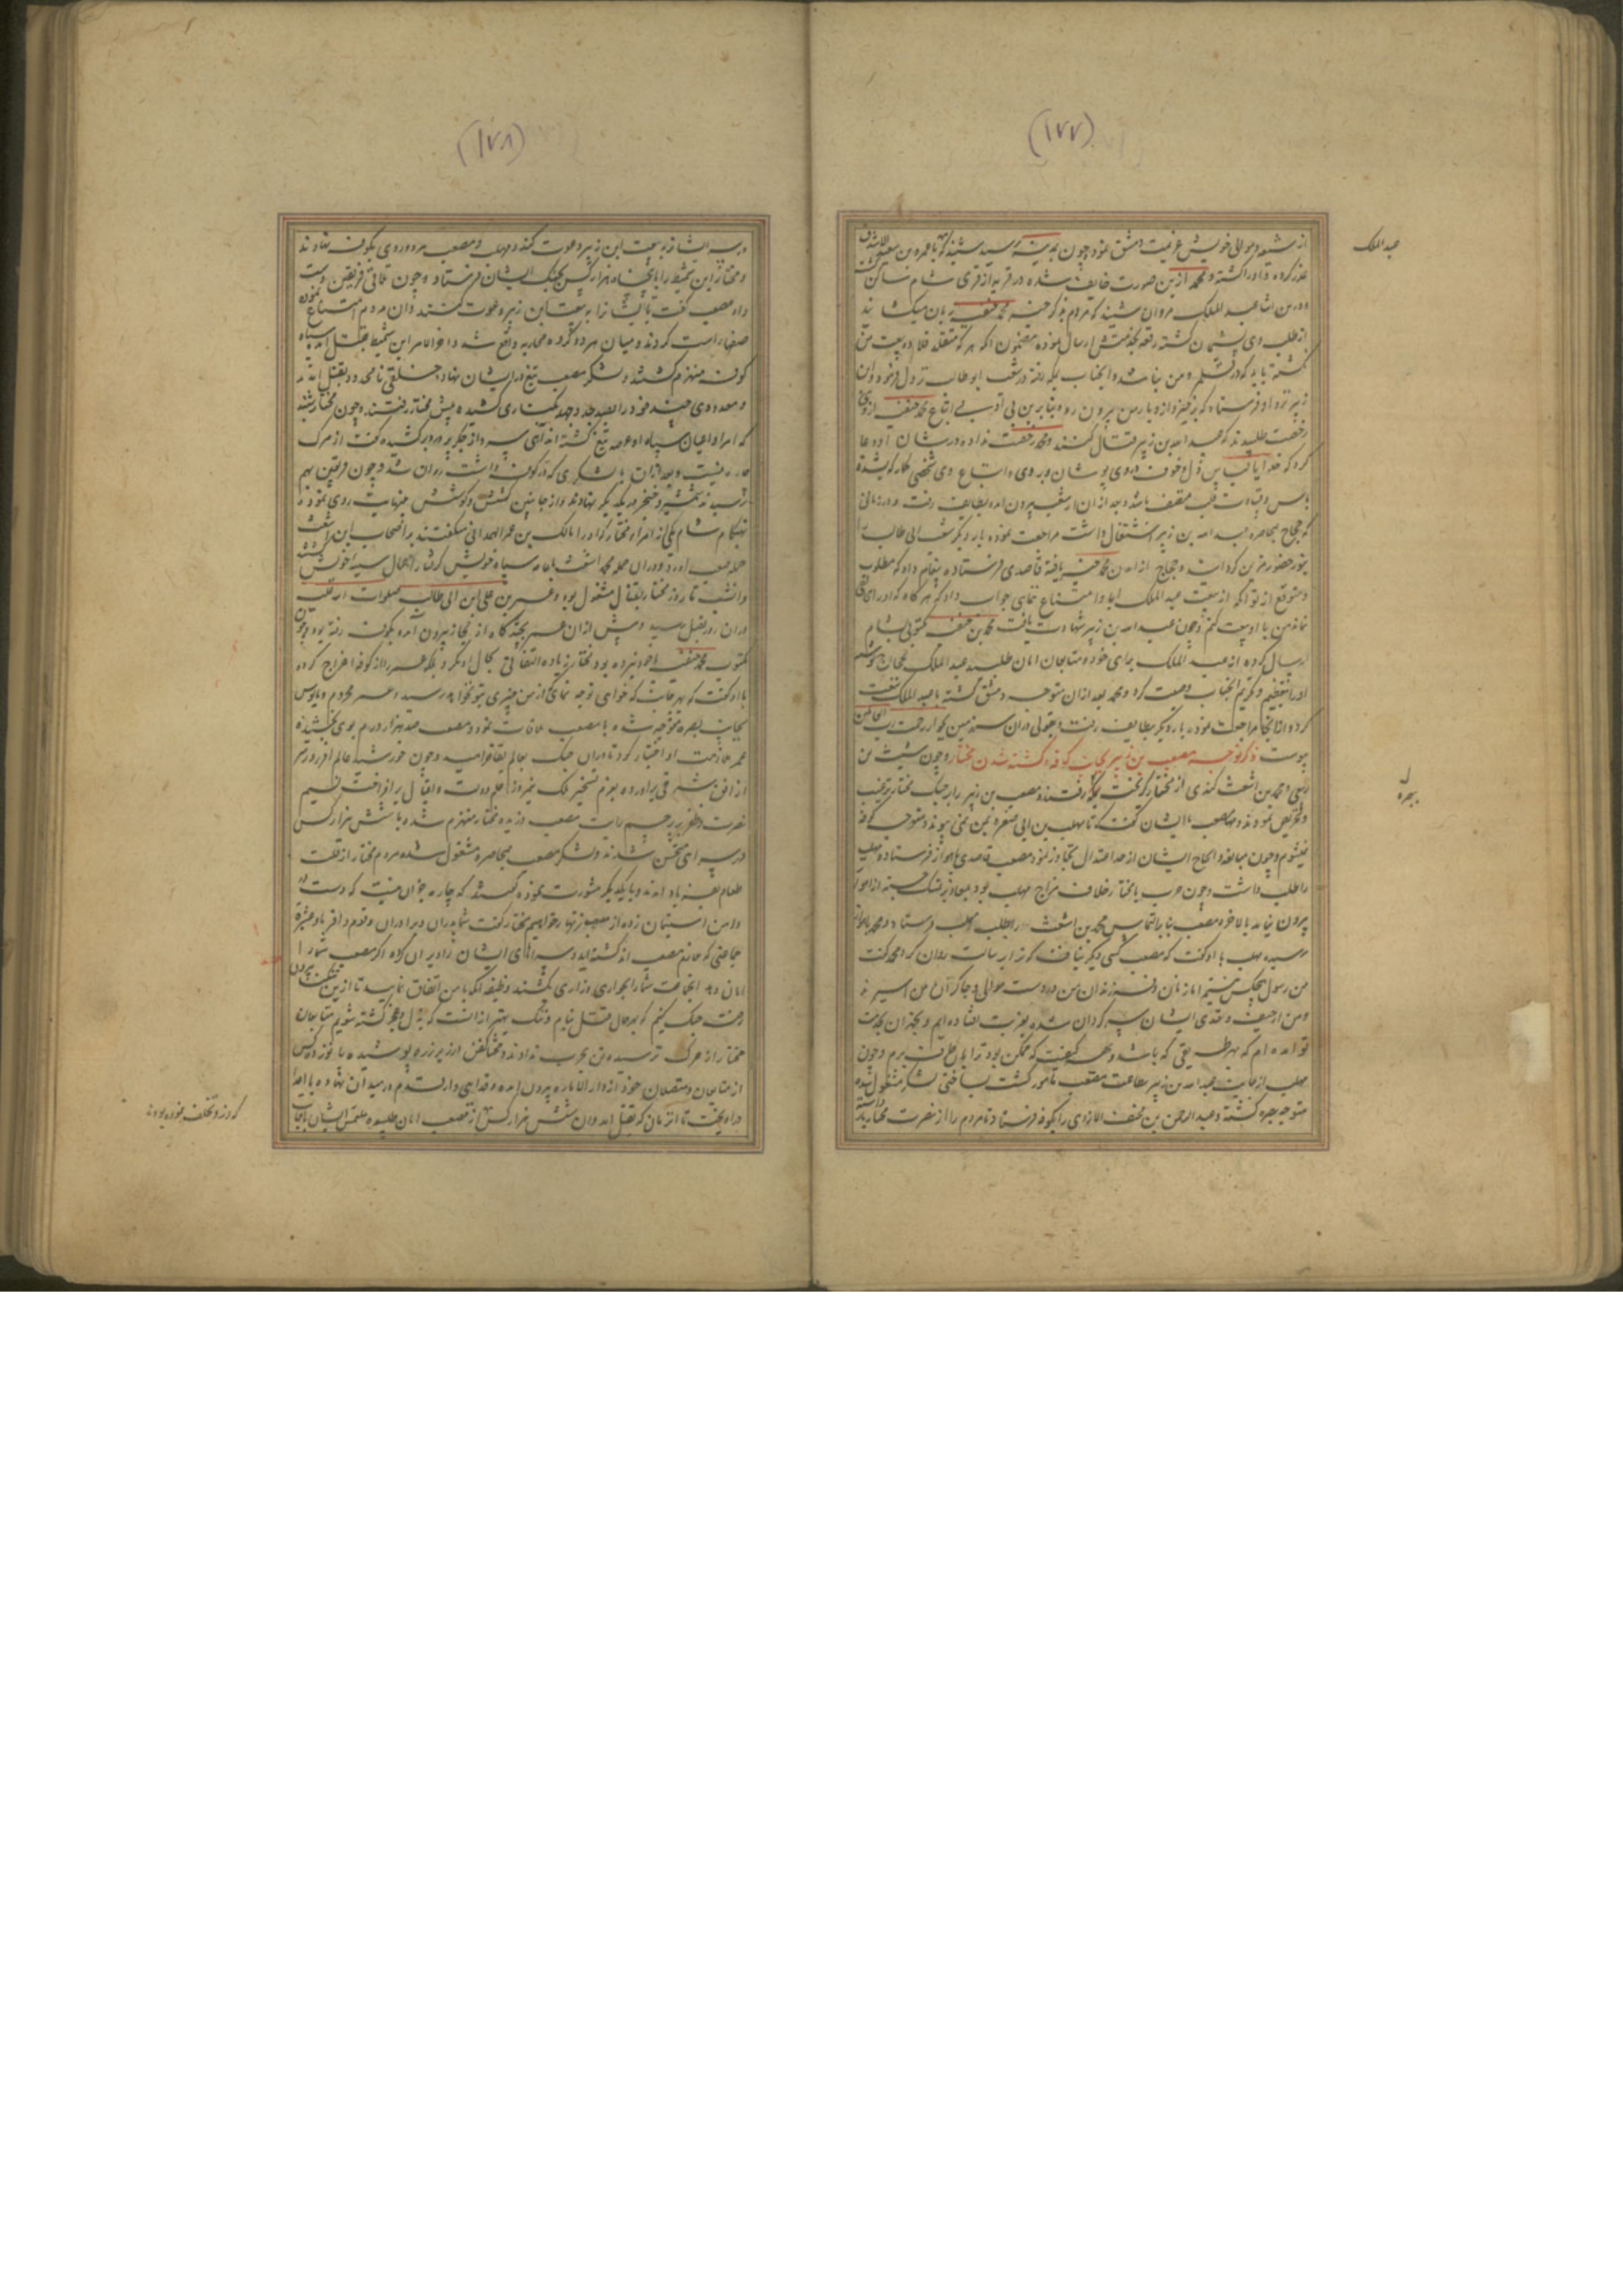 (۱۷۷)
عبدالملک
از شیعه و موالی خویش عزیمت دمشق نمود و چون بمدینه رسید شنید که با عمرو بن سعید
عذر کرده و او را کشته و محمد ازین صورت خایف شده در قریه از قری شام ساکن
و درین اثنا عبد الملک مروان شنید که مردم بذکر محمد حنفیه زبان میکشایند
از طلب وی پشیمان کشته رقعه بخدمتش ارسال نموده مضمون انکه هر که متقلد قلاده بیعت من
نکشته باید که در قلمرو من نباشد و آنجناب بمکه رفته در شعب ابو طالب نزول فرمود و ابن
زبیر نزد او فرستاد که برخیز و از دیار من بیرون رو بنابرین بی ادبی اتباع محمد حنفیه از وی
رخصت طلبیدند که با عبد الله بن زبیر قتال کنند و محمد رخصت نداده در شان او دعا
کرد که خدایا لباس ذل و خوف در وی پوشان و بر وی و اتباع وی شخصی کمار که بشدة
باس و قساوت قلب متصف باشد و بعد ازان از شعب بیرون امده بطایف رفت و در زمانی
که حجاج بمحاصره عبد الله بن زبیر اشتغال داشت مراجعت نموده بار دیکر شعب ابی طالب را
بنور حضور مزین کردانید و حجاج از امدن محمد خبر یافته قاصدی فرستاده پیغام داد که مطلوب
و متوقع از تو انکه از بیعت عبد الملک ابا و امتناع ننمایی جواب داد که هر کاه که او را
نماند من با او بیعت کنم و چون عبد الله بن زبیر شهادت یافت محمد بن حنفیه مکتوبی بشام
ارسال کرده از عبد الملک برای خود و متابعان امان طلبید عبد الملک
او را بتعظیم و تکریم آنجناب وصیت کرد و محمد بعد ازان متوجه دمشق کشته با عبد الملک بیعت
کرد و از انجا مراجعت نموده بار دیکر بطایف رفت و بقولی دران سرزمین بجوار رحمت
پیوست ذکر توجه مصعب بن زبیر بجانب کوفه و کشته شدن مختار و چون شبث بن
ربعی و محمد بن اشعث کندی از مختار کریخته ببصره رفتند و مصعب بن زبیر را بر جنک مختار ترغیب
بصره
و تحریص نمودند و مصعب با ایشان کفت که تا مهلب بن ابی صفره بمن نمی پیوندد متوجه کوفه
نمیشوم و چون مبالغه و الحاح ایشان از حد اعتدال تجاوز نمود مصعب قاصدی باهواز فرستاده مهلب
را طلب داشت و چون حرب با مختار خلاف مزاج مهلب بود بمعاذیر تمسک جسته از اهواز
بیرون نیامد بالاخره مصعب بنا بر التماس محمد بن اشعث را بطلب مهلب فرستاد و محمد باهواز
رسیده مهلب با او کفت که مصعب کسی دیکر نیافت که ترا برسالت روان کرد محمد کفت
من رسول هیچکس نیستم اما زنان و فرزندان من در دست موالی و چاکران من اسیرند
و من از حیف و تعدی ایشان سرکردان شده بغربت افتاده ایم و بجذ آن بخدمت
تو امده ام که بهر طریقی که باشد و بهر کیفیت که ممکن بود ترا باین طرف برم و چون
مهلب از جانب عبد الله بن زبیر بطاعت مصعب مامور کشت بساختن لشکر مشغول شده
متوجه بصره کشته و عبد الرحمن بن مخنف الازدی را بکوفه فرستاد تا مردم را از نصرت مختار باز
(۱۷۸)
و بپوشیده ایشانرا به بیعت ابن زبیر دعوت کند و مهلب و مصعب هر دو روی بکوفه نهادند
و مختار ابن شمیط را با پنجاه هزار کس بجنک ایشان فرستاد و چون تلاقی فریقین دست
داد مصعب کفت تا ایشانرا به بیعت ابن زبیر دعوت کنند و آن مردم امتناع نموده
صفها راست کردند و میان هر دو کروه محاربه واقع شد و اخر الامر ابن شمیط بقتل امده سپاه
کوفه منهزم کشتند و لشکر مصعب تیغ در ایشان نهاده خلقی نامحدود بقتل امدند
و معدودی چند خود را بصد جد و جهد بکناری کشیده پیش مختار رفتند و چون مختار شنید
که امرا و اعیان سپاه او عرصه تیغ کشته اند آهی سرد از جکر پر درد برکشیده کفت از مرک
چاره نیست و بعد ازان با لشکری که در کوفه داشت روان شد و چون فریقین بهم
رسیدند شمشیر و خنجر در یکدیکر نهادند و از جانبین کشش و کوشش بنهایت روی نمود و
بهنکام شام یکی از امراء مختار که او را مالک بن عمر الهمدانی میکفتند بر اصحاب ابن اشعث
حمله صعب اورد و دران حمله محمد اشعث با عامه سپاه خویش کرفتار اعمال سیئه خویش کشتند
و آنشب تا روز مختار بقتال مشغول بود و عمر بن علی ابن ابی طالب صلوات الله علیه
دران روز بقتل رسید و پیش ازان عمر بچند کاه از حجاز بیرون آمده بکوفه رفته بود و چون
مکتوب محمد حنفیه با خود نبرده بود مختار زیاده التفاتی بحال او نکرد و بلکه عمر را از کوفه اخراج کرده
با او کفت که بهر جانب که خواهی توجه نمای که از من چیزی بتو نخواهد رسید و عمر محروم و مایوس
بجانب بصره متوجه شده با مصعب ملاقات نمود و مصعب صد هزار درم بوی بخشیده
عمر ملازمت او اختیار کرد تا دران جنک بعالم بقا خرامید و چون خورشید عالم افروز سر
از افق شرقی براورده بعزم تسخیر ملک نیمروز علم دولت و اقبال برافراخت نسیم
نصرت و ظفر بر پرچم رایت مصعب وزیده مختار منهزم شده با شش هزار کس
در سرای متحصن شدند و لشکر مصعب بمحاصره مشغول شده مردم مختار از قلت
طعام بفریاد امدند و با یکدیکر مشورت نموده کفتند که چاره جز آن نیست که دست در
دامن استیمان زده از مصعب زنهار خواهیم مختار کفت شما پدران و برادران و قوم و اقربا و عشیرة
جماعتی که ملازم مصعب اند کشته اید و سراهای ایشان را ویران کرده اکر مصعب شما را
امان دهد انجماعت شما را بخواری و زاری بکشند وظیفه انکه با من اتفاق نمایید تا ازین
رفته جنک کنیم که بهر حال قتل بنام و ننک بهتر ازانست که بذل و عجز کشته شویم متابعان
مختار از مرک ترسیده تن بحرب ندادند و مختار کفن از زیر زره پوشیده با نوزده کس
از متابعان و متصلان خود از دار الاماره بیرون امده و فدایی وار قدم در میدان نهاده با اعدا
دراویخت تا ان زمان که بقتل امد و ان شش هزار کس از مصعب امان طلبیده ملتمس ایشان باجابت
که در و تخلف نموده بودند